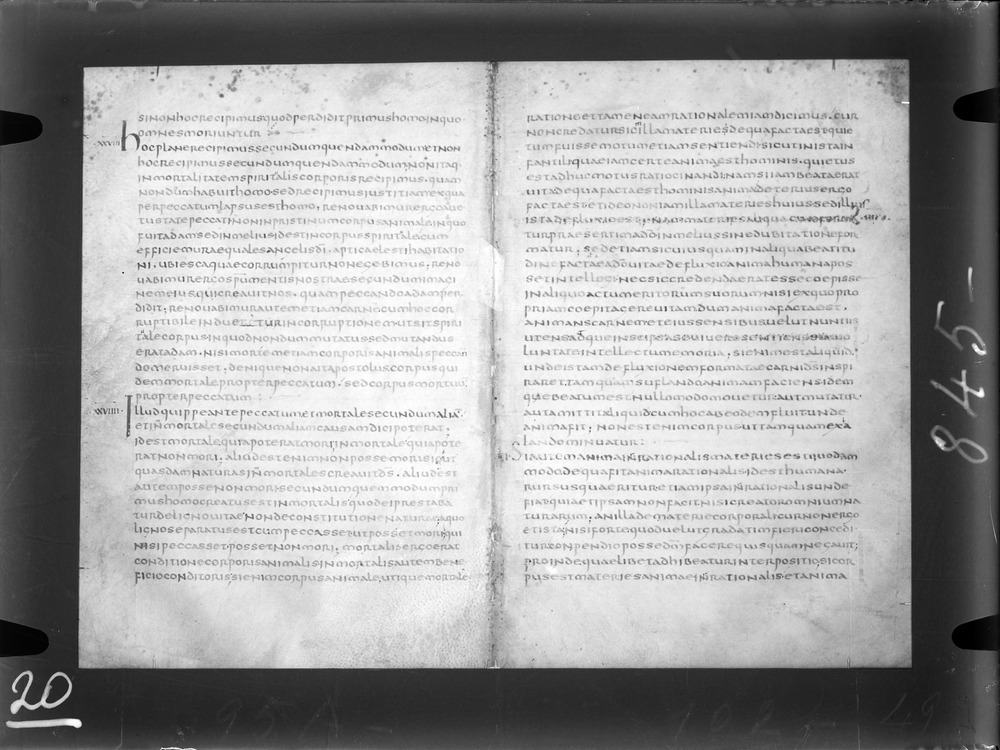 sinonhocrecipimusquodperdiditprimushomoinquo
omnesmoriuntur
xxviii hocplanerecipimussecundumquendammodumetnon
hocrecipimussecundumquendammodumnonitaq
inmortalitatemspiritaliscorporisrecipimus·quam
nondumhabuithomo·sedrecipimusiustitiamexqua
perpeccatumlapsusesthomo·renovabimurergoave
tustatepeccatinoninpristinumcorpusanimaleinquo
fuitadamsedinmeliusidestincorpusspiritalecum
efficiemuraequalesangelisdi·apticaelestihabitatio
ni·ubiescaquaecorrumpiturnonegebimus·reno
vabimurergospumentisnostraesecundumimagi
nemeiusquicreavitnos·quampeccandoadamper
didit;renovabimurautemetiamcarnecumhoccor
ruptibileinduetur incorruptionemutsitspiri
talecorpusinquodnondummutatussedmutandus
eratadam·nisimortemetiamcorporisanimalispeccan
domeruisset·deniquenonaitapostoluscorpusqui
demmortalepropterpeccatum·sedcorpusmortuu
propterpeccatum:
xxviiii· Illudquippeantepeccatumetmortalesecundumalia
etinmortalesecundumaliamcausamdicipoterat;
idestmortalequiapoteratmoriinmortalequiapote
ratnonmori·aliudestenimnonpossemorisicut
quasdamnaturasinmortalescreavitds·aliudest
autempossenonmorisecundumquemmodumpri
mushomocreatusestinmortalisquodeiprestaba
turdelignovitaenondeconstitutionenaturaeaquo
lignoseparatusestcumpeccassetutpossetmoriqui
nisipeccassetpossetnonmori·mortalisergoerat
conditionecorporisanimalisinmortalisautembene
ficioconditorissienimcorpusanimale·utiquemortale
rationeettameneamrationalemiamdicimus·cur
noncredatursicillamateriesdequafactaestquie
tumfuissemotumetiamsentiendisicutinistain
fantiliquaeiamcerteanimaesthominis·quietus
estadhucmotusratiocinandi;namsiiambeataerat
vitadequafactaesthominisanimadeteriusergo
factaestetideononiamillamaterieshuiussedillius
turpraesertimaddinmeliussinedubitationefor
matur; sedetiamsicuiusquaminaliquabeatitu
dinefactaeaddvitaedefluxioanimahumanapos
setintelleginecsiccredendaeratessecoepisse
inaliquoactumeritorumsuorumnisiexquopro
priamcoepitagerevitamdumanimafactaest·
animanscarnemeteiussensibusvelutnuntiis
utensadque
luntateintellectumemoria;sienimestaliquid·
undeistamdefluxionemformataecarnidsinspi
raret·tamquamsuflandoanimamfaciensidem
quebeatumestnullomodomoveturautmutatur·
autamittitaliquidcumhocabeodemfluitunde
animafit; nonestenimcorpusuttamquamexa
landominuatur:
Siautemanimainrationalismateriesestquodam
mododequafitanimarationalisidesthumana·
rursusquaerituretiamipsainrationalisunde
fiatquiaetipsamnonfacitnisicreatoromniumna
turarum;anilladematericorporalicurnonergo
etistanisifortequodvelutgradatimfiericoncedi
turconpendiopossedmfacerequisquamnegavit;
proindequaelibetadhibeaturinterpositiosicor
pusestmateriesanimaeinrationalisetanima
20
845-